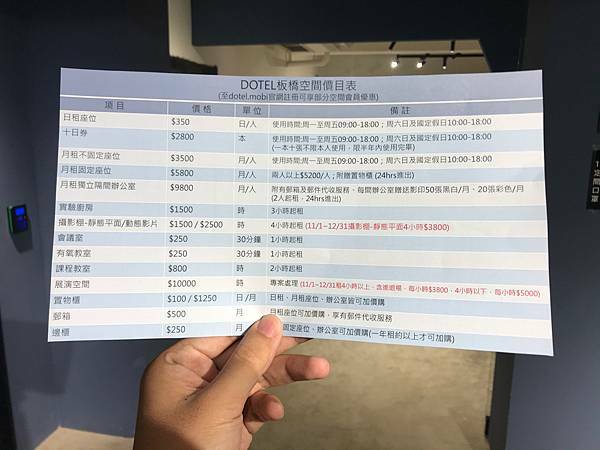 DOTEL板橋空間價目表
(至dotel.mobi官網註冊可享部分空間會員優惠)
項目 價格 單位 備註
日租座位 $350 日/人 使用時間:周一至周五09:00-18:00；周六日及國定假日10:00-18:00
十日券 $2800 本 使用時間:周一至周五09:00-18:00；周六日及國定假日10:00-18:00
(一本十張不限本人使用，限半年內使用完畢)
月租不固定座位 $3500 月/人 使用時間:周一至周五09:00-18:00；周六日及國定假日10:00-18:00
月租固定座位 $5800 月/人 兩人以上$5200/人；附贈置物櫃 (24hrs進出)
月租獨立隔間辦公室 $9800 月/人 附有郵箱及郵件代收服務、每間辦公室贈送影印50張黑白/月、20張彩色/月
(2人起租，24hrs進出)
實驗廚房 $1500 時 3小時起租
攝影棚-靜態平面/動態影片 $1500 / $2500 時 4小時起租 (11/1~12/31攝影棚-靜態平面4小時$3800)
會議室 $250 30分鐘 1小時起租
有氧教室 $250 30分鐘 1小時起租
課程教室 $800 時 2小時起租
展演空間 $10000 時 專案處理 (11/1~12/31租4小時以上，含進退場，每小時$3800，4小時以下，每小時$5000)
置物櫃 $100 / $1250 日 /月 日租、月租座位、辦公室皆可加價購
郵箱 $500 月 月租座位可加價購，享有郵件代收服務
邊櫃 $250 月 固定座位、辦公室可加價購(一年租約以上才可加購)
定時口罩